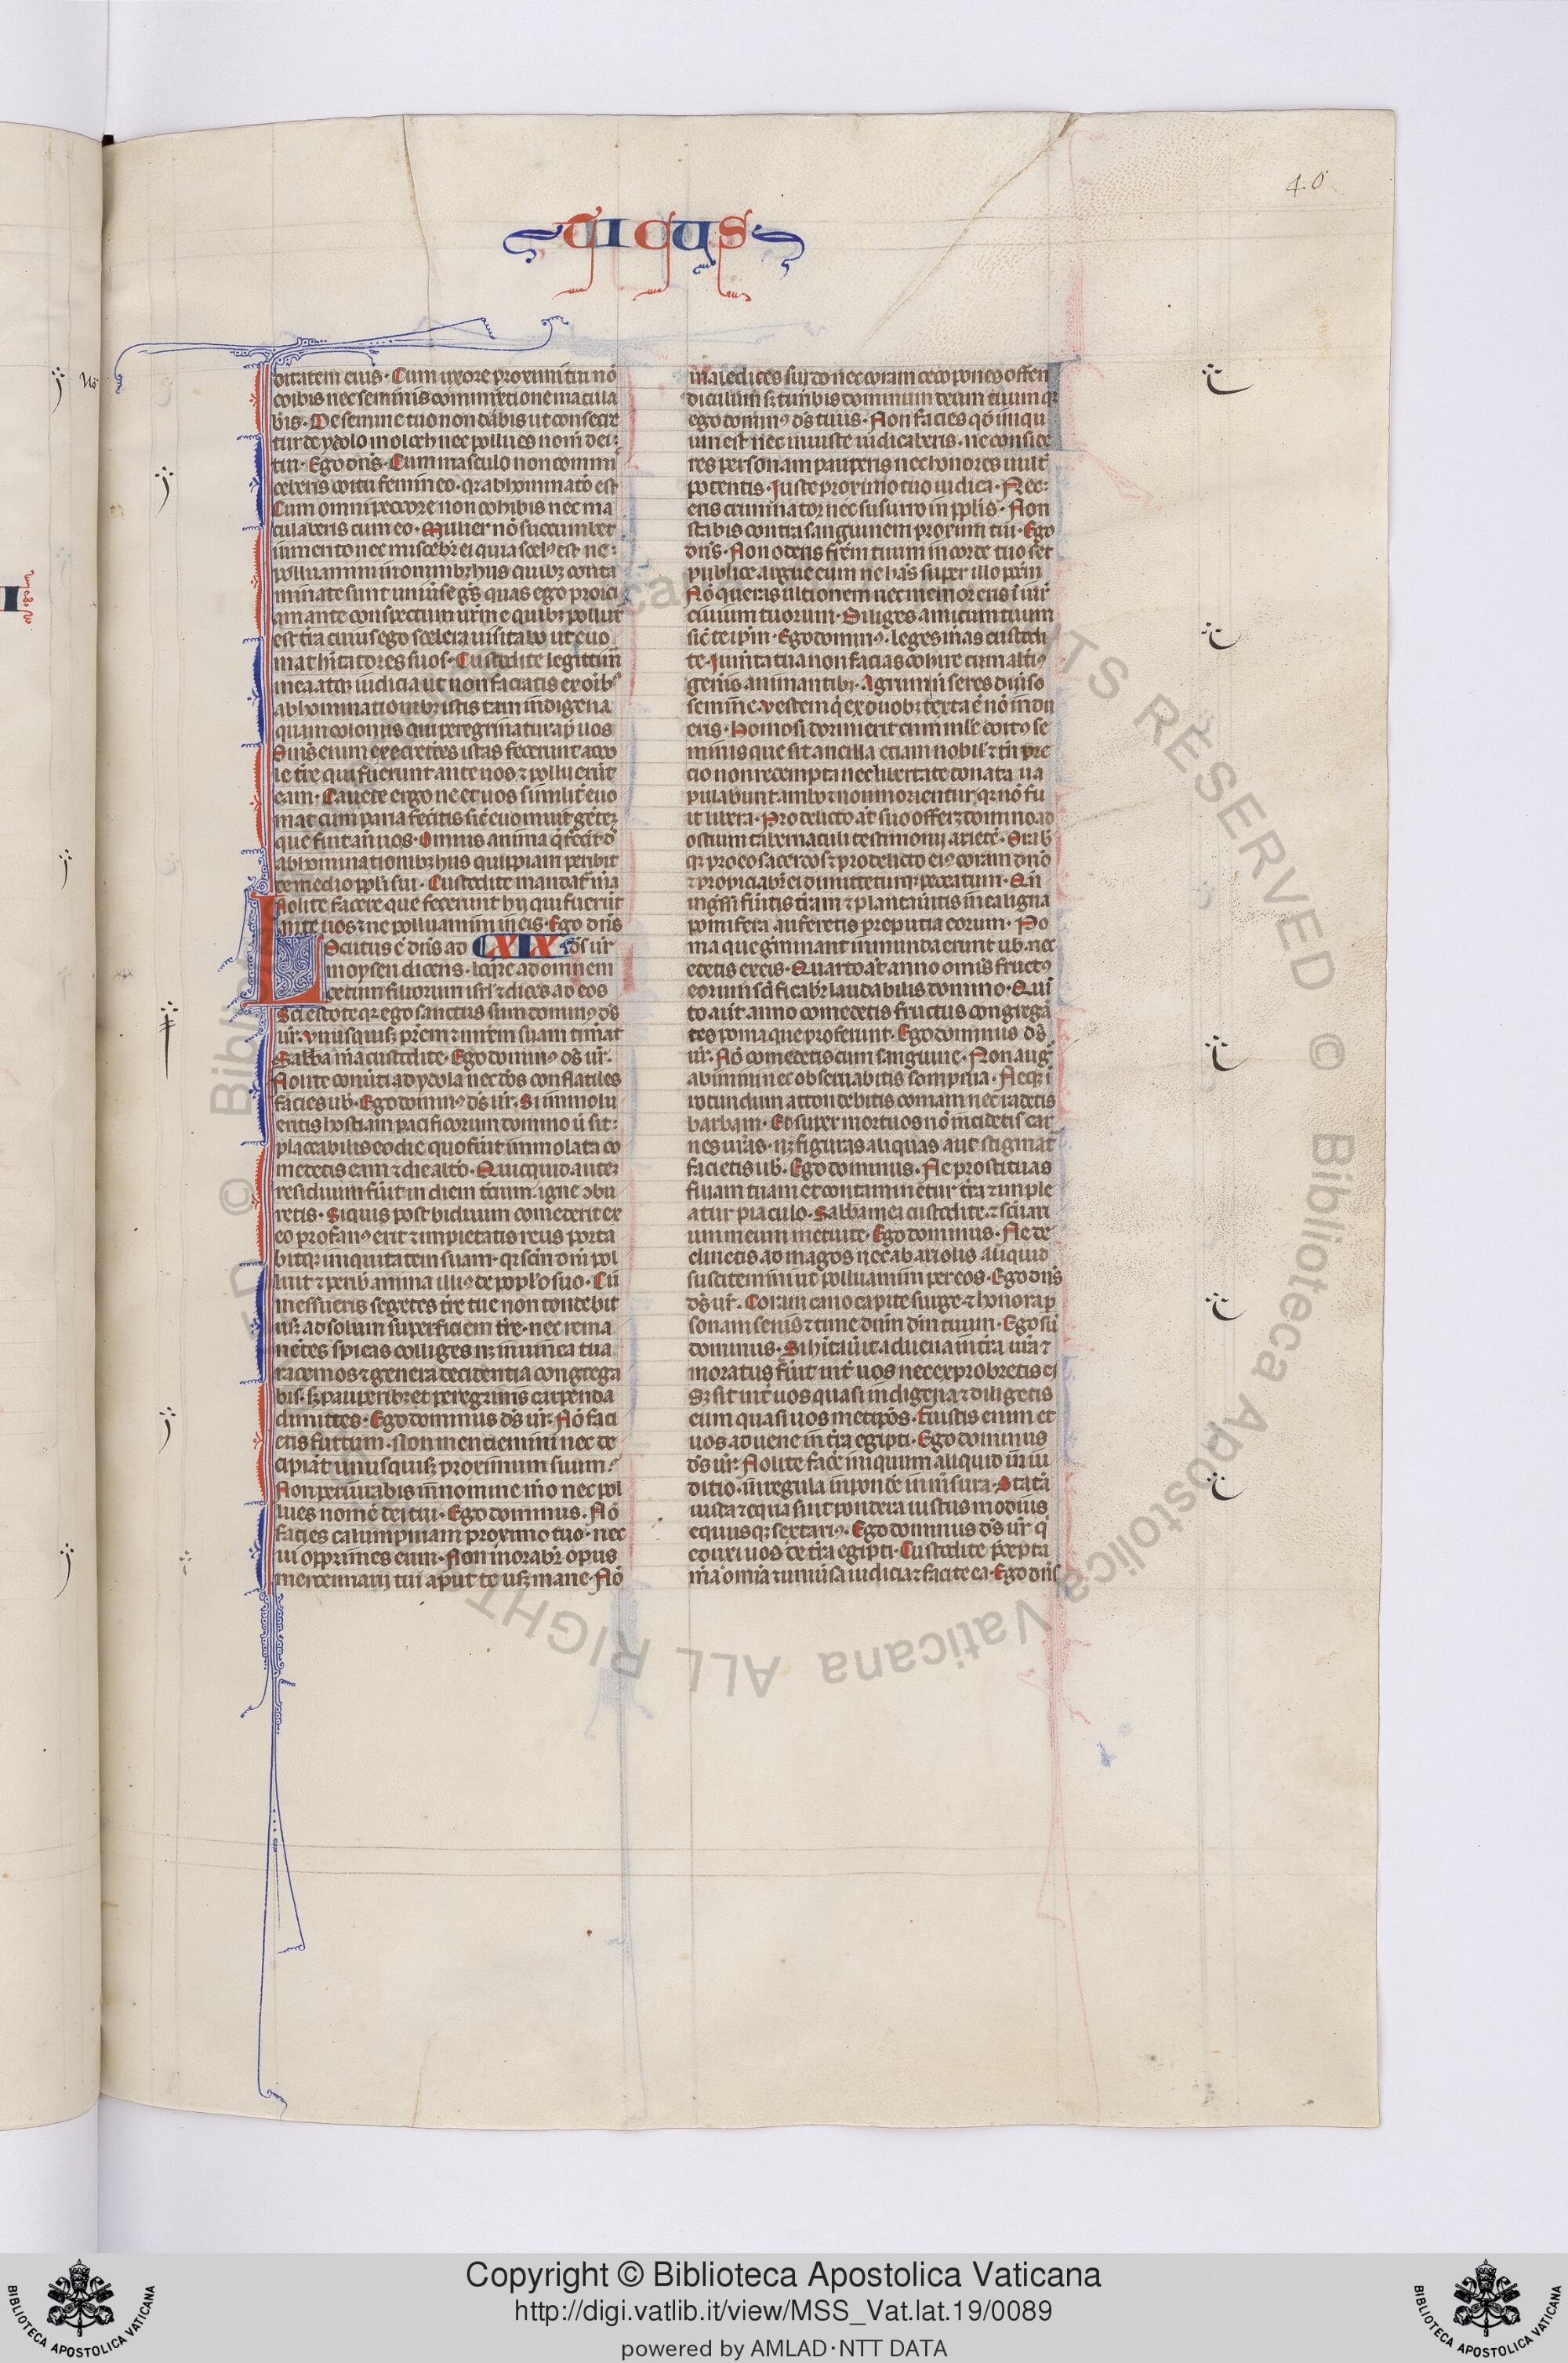 40
TICUS
ditatem eius. Cum uxore proximi tui nō
coibis nec seminis cōmixtione macula
b̄is. De semine tuo non dabis ut consecre
tur ydolo moloch nec pollues nom̄ dei
tui. Ego dn̄s. Cum masculo non commi
scearis coitu femineo. qr abhominatō est
Cum omni pecore non cohibis nec ma
culaberis cum eo. Mulier nō succumbet
iumento nec miscebit̄ ei quia scelꝰ est ne
polluamini in omnibꝫ hiis quibꝫ conta
minate sunt uniūse gn̄s quas ego proici
am ante conspectum ur̄m e quibꝫ polluta
est tr̄a cuius ego scelera uisitabo ut euo
mat hītatores suos. Custodite legittima
mea atqꝫ iudicia ut non faciatis ex oībꝰ
abhominationibꝫ istis tam indigena
quam colonus qui peregrinatur ap̄ uos
Om̄s enim execratōes istas fecerunt acco
le tr̄e qui fuerunt ante uos ⁊ polluerūt
eam. Cauete ergo ne et uos similit̄ euo
mat cum paria fecitis sic̄ euomuit gētem
que fuit an̄ uos. Omnis anima q̄ fecit d̄
abhominationibꝫ hiis quippiam peribit
de medio ppl̄i sui. Custodite mandat̄ m̄a
Nolite facere que fecerunt hij qui fuerūt
ante uos ⁊ ne polluamini in eis. Ego dn̄s
Locutus ē dn̄s ad CXIX ds̄ ur̄
moysen dicens. loq̄re ad omnem
cetum filiorum isrl̄ ⁊ dices ad eos
Sc̄i estote qr ego sanctus sum dominꝰ ds̄
ur̄. Vnusquisqꝫ pr̄em ⁊ mr̄em suam timeat
Sabbata m̄a custodite. Ego dominꝰ ds̄ ur̄.
Nolite conūti ad ydola nec deos conflatiles
facies ub̄. Ego dominꝰ ds̄ ur̄. Si immolu
eritis hostiam pacificorum domino ut sit
placabilis eo die quo fūit immolata co
medetis eam ⁊ die altō. Quicquid autem
residuum fūit in diem tc̄ium igne ɔbu
retis. Siquis post biduum comederit ex
eo profanꝰ erit ⁊ impietatis reus porta
bitqꝫ iniquitatem suam. qr sc̄m dn̄i pol
luit ⁊ perib̄ anima illiꝰ de popl̄o suo. Cū
messueris segetes tr̄e tue non tondebis
usqꝫ ad solum superficiem tr̄e. nec rema
nētes spicas colliges nꝫ in uinea tua
racemos ⁊ genera decidentia congrega
bis. sꝫ pauperibꝫ et peregrinis carpenda
dimittes. Ego dominus ds̄ ur̄. Nō faci
etis furtum. Non mentiemini nec de
cipiat unusquisqꝫ proximum suum.
Non periurabis in nomine m̄o nec pol
lues nomē dei tui. Ego dominus. Nō
facies calumpniam proximo tuo. nec
ui opprimes eum. Non morabit̄ opus
mercennarij tui aput te usqꝫ mane. Nō
maledices surdo nec coram ceco pones offen
diculum sꝫ timebis dominum deum tuum qr
ego dominꝰ ds̄ tuus. Non facies qd̄ iniqu
um est nec iniuste iudicaberis. ne conside
res personam pauperis nec honores uult̄
potentis. Iuste proximo tuo iudica. Nec
eris criminator nec susurro in ppl̄is. Non
stabis contra sanguinem proximi tui. Ego
dn̄s. Non oderis fr̄em tuum in corde tuo set
publice argue eum ne h̄as super illo pc̄m
Nō queras ultionem nec memor eris ī iur̄
ciuium tuorum. Diliges amicum tuum
sic̄ te ip̄m. Ego dominꝰ. leges meas custodi
te. Iumenta tua non facias cohire cum altiꝰ
gen̄is animantibꝫ. Agrum n̄ seres diuīso
semine. Vestem q̄ ex duobꝫ texta ē nō indu
eris. Homo si dormierit cum mulīe coitu se
minis que sit ancilla etiam nobil̄ ⁊ tn̄ pre
cio non redempta nec libertate donata ua
pulabunt ambo ⁊ non morientur. qr nō fu
it libera. Pro delicto at̄ suo offeret domino ad
ostium tabernaculi testimonij arietē. Orab̄
qꝫ pro eo sacerdos ⁊ pro delicto eiꝰ coram dn̄o
⁊ propiciabit̄ ei dimitteturqꝫ peccatum. Qn̄
ingr̄ssi fūitis tr̄am ⁊ plantauitis in ea ligna
pomifera auferetis preputia eorum. Po
ma que ḡminant inmunda erunt ub̄. nec
edetis ex eis. Quarto at̄ anno om̄is fructꝰ
eorum sc̄ificabit̄ laudabilis domino. Quī
to aut̄ anno comedetis fructus congregā
tes poma que proferunt. Ego dominus ds̄
ur̄. Nō comedetis cum sanguine. Non aug
abimini nec obseruabitis sompnia. Neqꝫ ī
rotundum attondebitis comam nec radetis
barbam. Et super mortuos nō incidetis car
nes ur̄as. nꝫ figuras aliquas aut stigmat̄
facietis ub̄. Ego dominus. Ne prostituas
filiam tuam et contaminetur tr̄a ⁊ imple
atur piaculo. Sabbata mea custodite. ⁊ sc̄uari
um meum metuite. Ego dominus. Ne de
clinetis ad magos nec ab ariolis aliquid
suscitemini ut polluamini per eos. Ego dn̄s
ds̄ ur̄. Coram cano capite surge ⁊ honora p
sonam senis ⁊ time dn̄m dm̄ tuum. Ego sū
dominus. Si hītauit aduena in tr̄a ur̄a ⁊
moratus fūit int̄ uos nec exprobretis ei
Sꝫ sit int̄ uos quasi indigena ⁊ diligetis
eum quasi uos metip̄os. Fuistis enim et
uos aduene in tr̄a egipti. Ego dominus
ds̄ ur̄. Nolite facē iniquum aliquid in iu
ditio. in regula in ponde in mēsura. Statā
iusta ⁊ equa sint pondera iustus modius
equusqꝫ sextariꝰ. Ego dominus ds̄ ur̄ q̄
eduxi uos de tr̄a egipti. Custodite p̄cepta
m̄a om̄ia ⁊ uniūsa iudicia ⁊ facite ea. Ego dn̄s
© Biblioteca Apostolica Vaticana ALL RIGHTS RESERVED
Copyright © Biblioteca Apostolica Vaticana
http://digi.vatlib.it/view/MSS_Vat.lat.19/0089
powered by AMLAD·NTT DATA
BIBLIOTECA APOSTOLICA VATICANA
BIBLIOTECA APOSTOLICA VATICANA